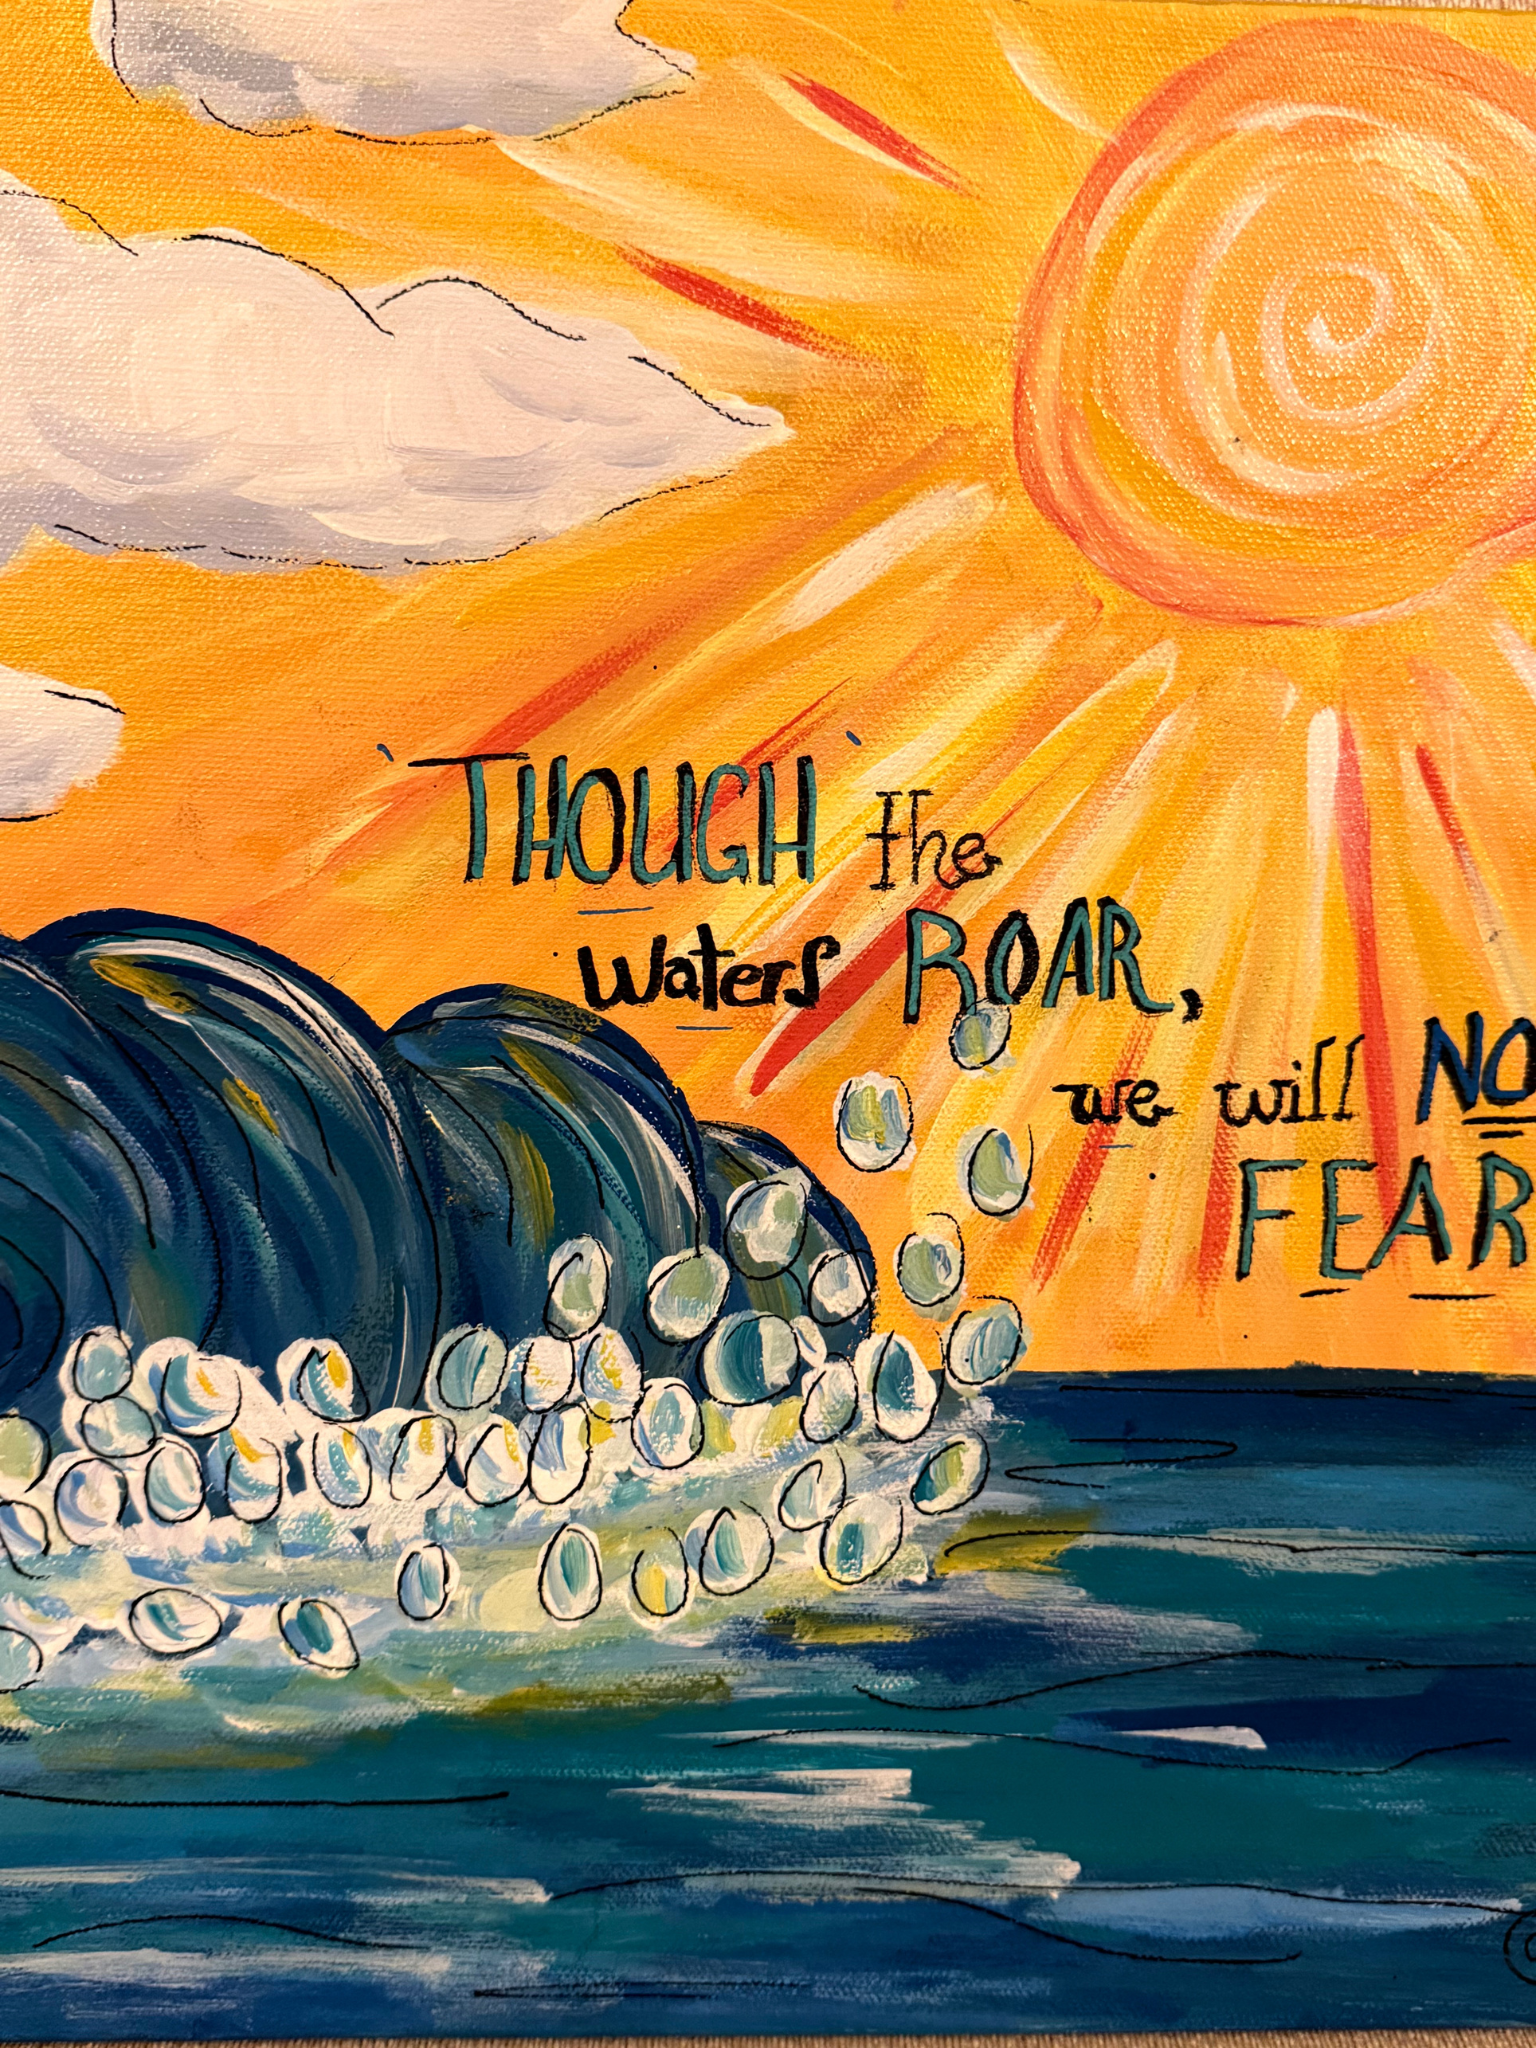 'THOUGH'the
waters ROAR,
we will NO
FEAR